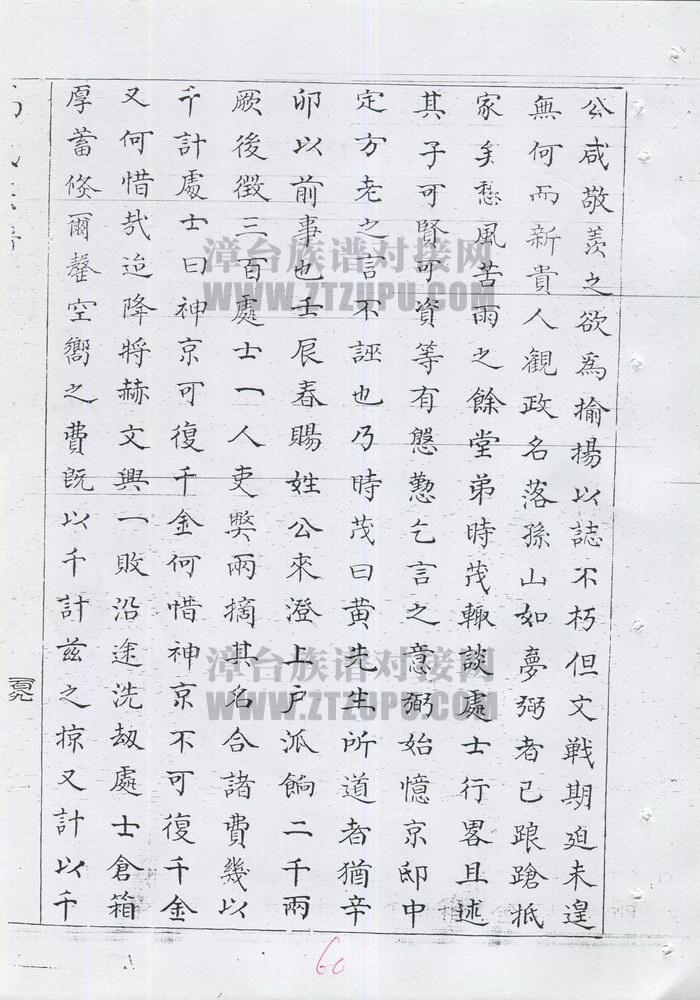 公咸敬羨之欲為揄揚以誌不朽但文戰期廹未遑
無何而新貴人觀政名落孫山如夢弼者已踉蹌抵
家矣愁風苦雨之餘堂弟時茂輙談處士行畧且述
其子可賢可資等有慇懃乞言之意弼始憶京邸中
定方老之言不誣也乃時茂曰黃先生所道者猶辛
卯以前事也壬辰春賜姓公來澄上戶派餉二千兩
厥後徵三百處士一人吏獘兩摘其名合諸費幾以
千計處士曰神京可復千金何惜神京不可復千金
又何惜哉迨降將赫文興一敗沿途洗刼處士倉箱
厚蓄倏爾罄空嚮之費既以千計茲之掠又計以千
漳台族谱对接网
WWW.ZTZUPU.COM
漳台族谱对接网
WWW.ZTZUPU.COM
60